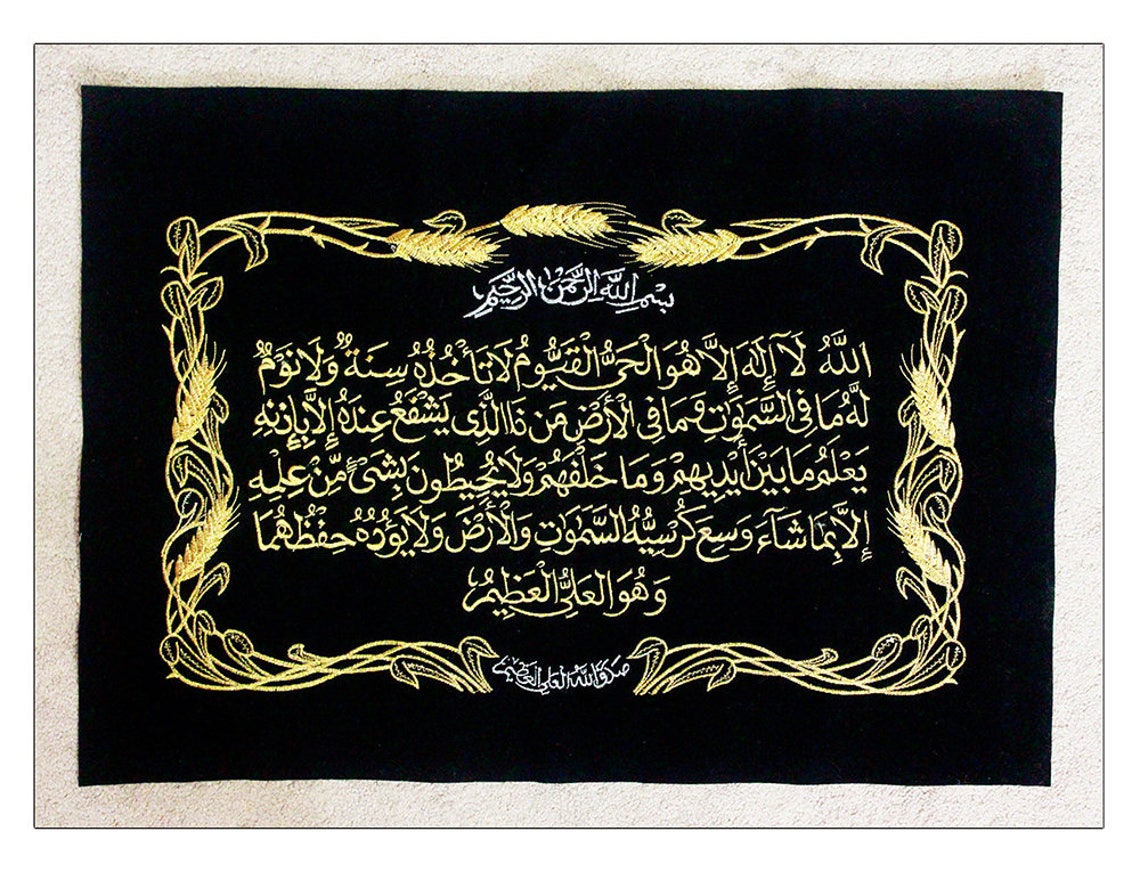 بِسْمِ اللَّهِ الرَّحْمٰنِ الرَّحِيمِ
اللَّهُ لَآ إِلٰهَ إِلَّا هُوَ الْحَىُّ الْقَيُّومُ لَا تَأْخُذُهُ سِنَةٌ وَلَا نَوْمٌ
لَّهُ مَا فِى السَّمٰوٰتِ وَمَا فِى الْأَرْضِ مَن ذَا الَّذِى يَشْفَعُ عِندَهُ إِلَّا بِإِذْنِهِ
يَعْلَمُ مَا بَيْنَ أَيْدِيهِمْ وَمَا خَلْفَهُمْ وَلَا يُحِيطُونَ بِشَىْءٍ مِّنْ عِلْمِهِ
إِلَّا بِمَا شَآءَ وَسِعَ كُرْسِيُّهُ السَّمٰوٰتِ وَالْأَرْضَ وَلَا يَؤُدُهُ حِفْظُهُمَا
وَهُوَ الْعَلِىُّ الْعَظِيمُ
صدق الله العلي العظيم